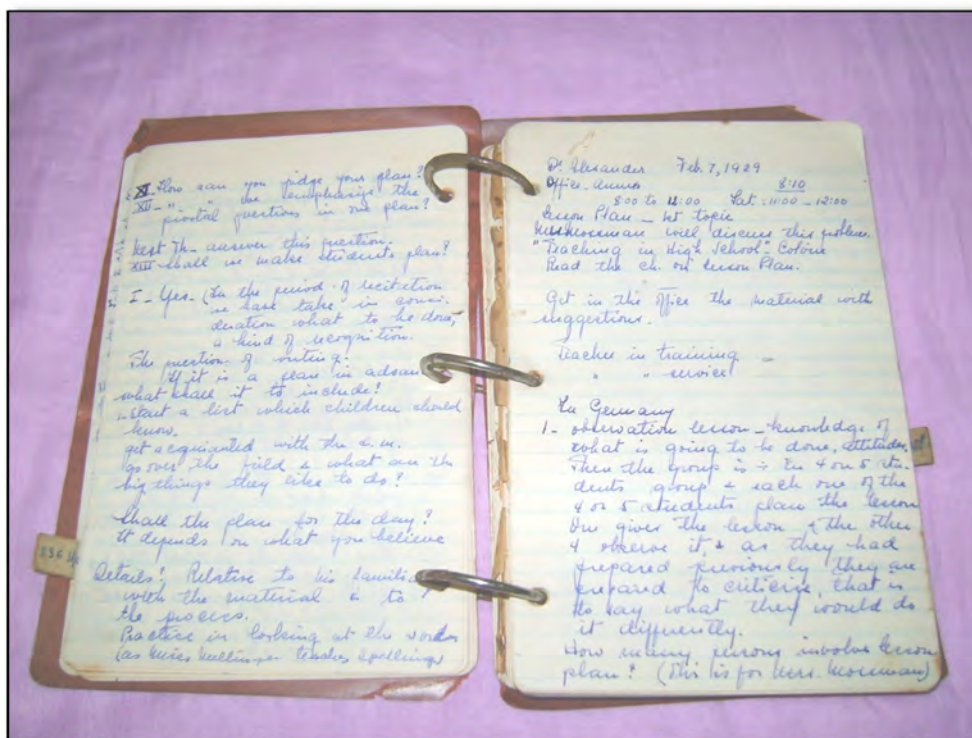 XI - How can you judge your plan?
XII - " " we emphasize the
pivotal questions in one plan?
Next Th - answer this question.
XIII - Shall we make students plan?
I - Yes - (In the period of recitation
we have take in consi-
deration what to be done,
a kind of recognition.
The question of writing.
If it is a plan in advan
what shall it to include?
Start a list which children should
know.
get acquainted with the
go over the field & what are the
big things they like to do?
Shall the plan for the day?
It depends on what you believe
Details! Relative to his famili
with the material & to
the process.
Practice in looking at the words
(as Miss teaches spelling)
Dr. Alexander Feb. 7, 1929
Office - Annex 8:10
8:00 to 12:00 Sat: 11:00 - 12:00
Lesson Plan - 1st topic
Mrs. Mossman will discuss this problem.
"Teaching in High School" Colvin
Read the ch. on Lesson Plan.
Get in the office the material with
suggestions.
Teacher in training -
" " service
In Germany
1 - observation lesson - knowledge of
what is going to be done, attitudes,
Then the group is in 4 or 5 stu-
dents group & each one of the
4 or 5 students plan the lesson
One gives the lesson & the other
4 observe it, & as they had
prepared previously they are
prepared to criticise, that is
to say what they would do
it differently.
How many persons involve lesson
plan? (This is for Mrs. Mossman)